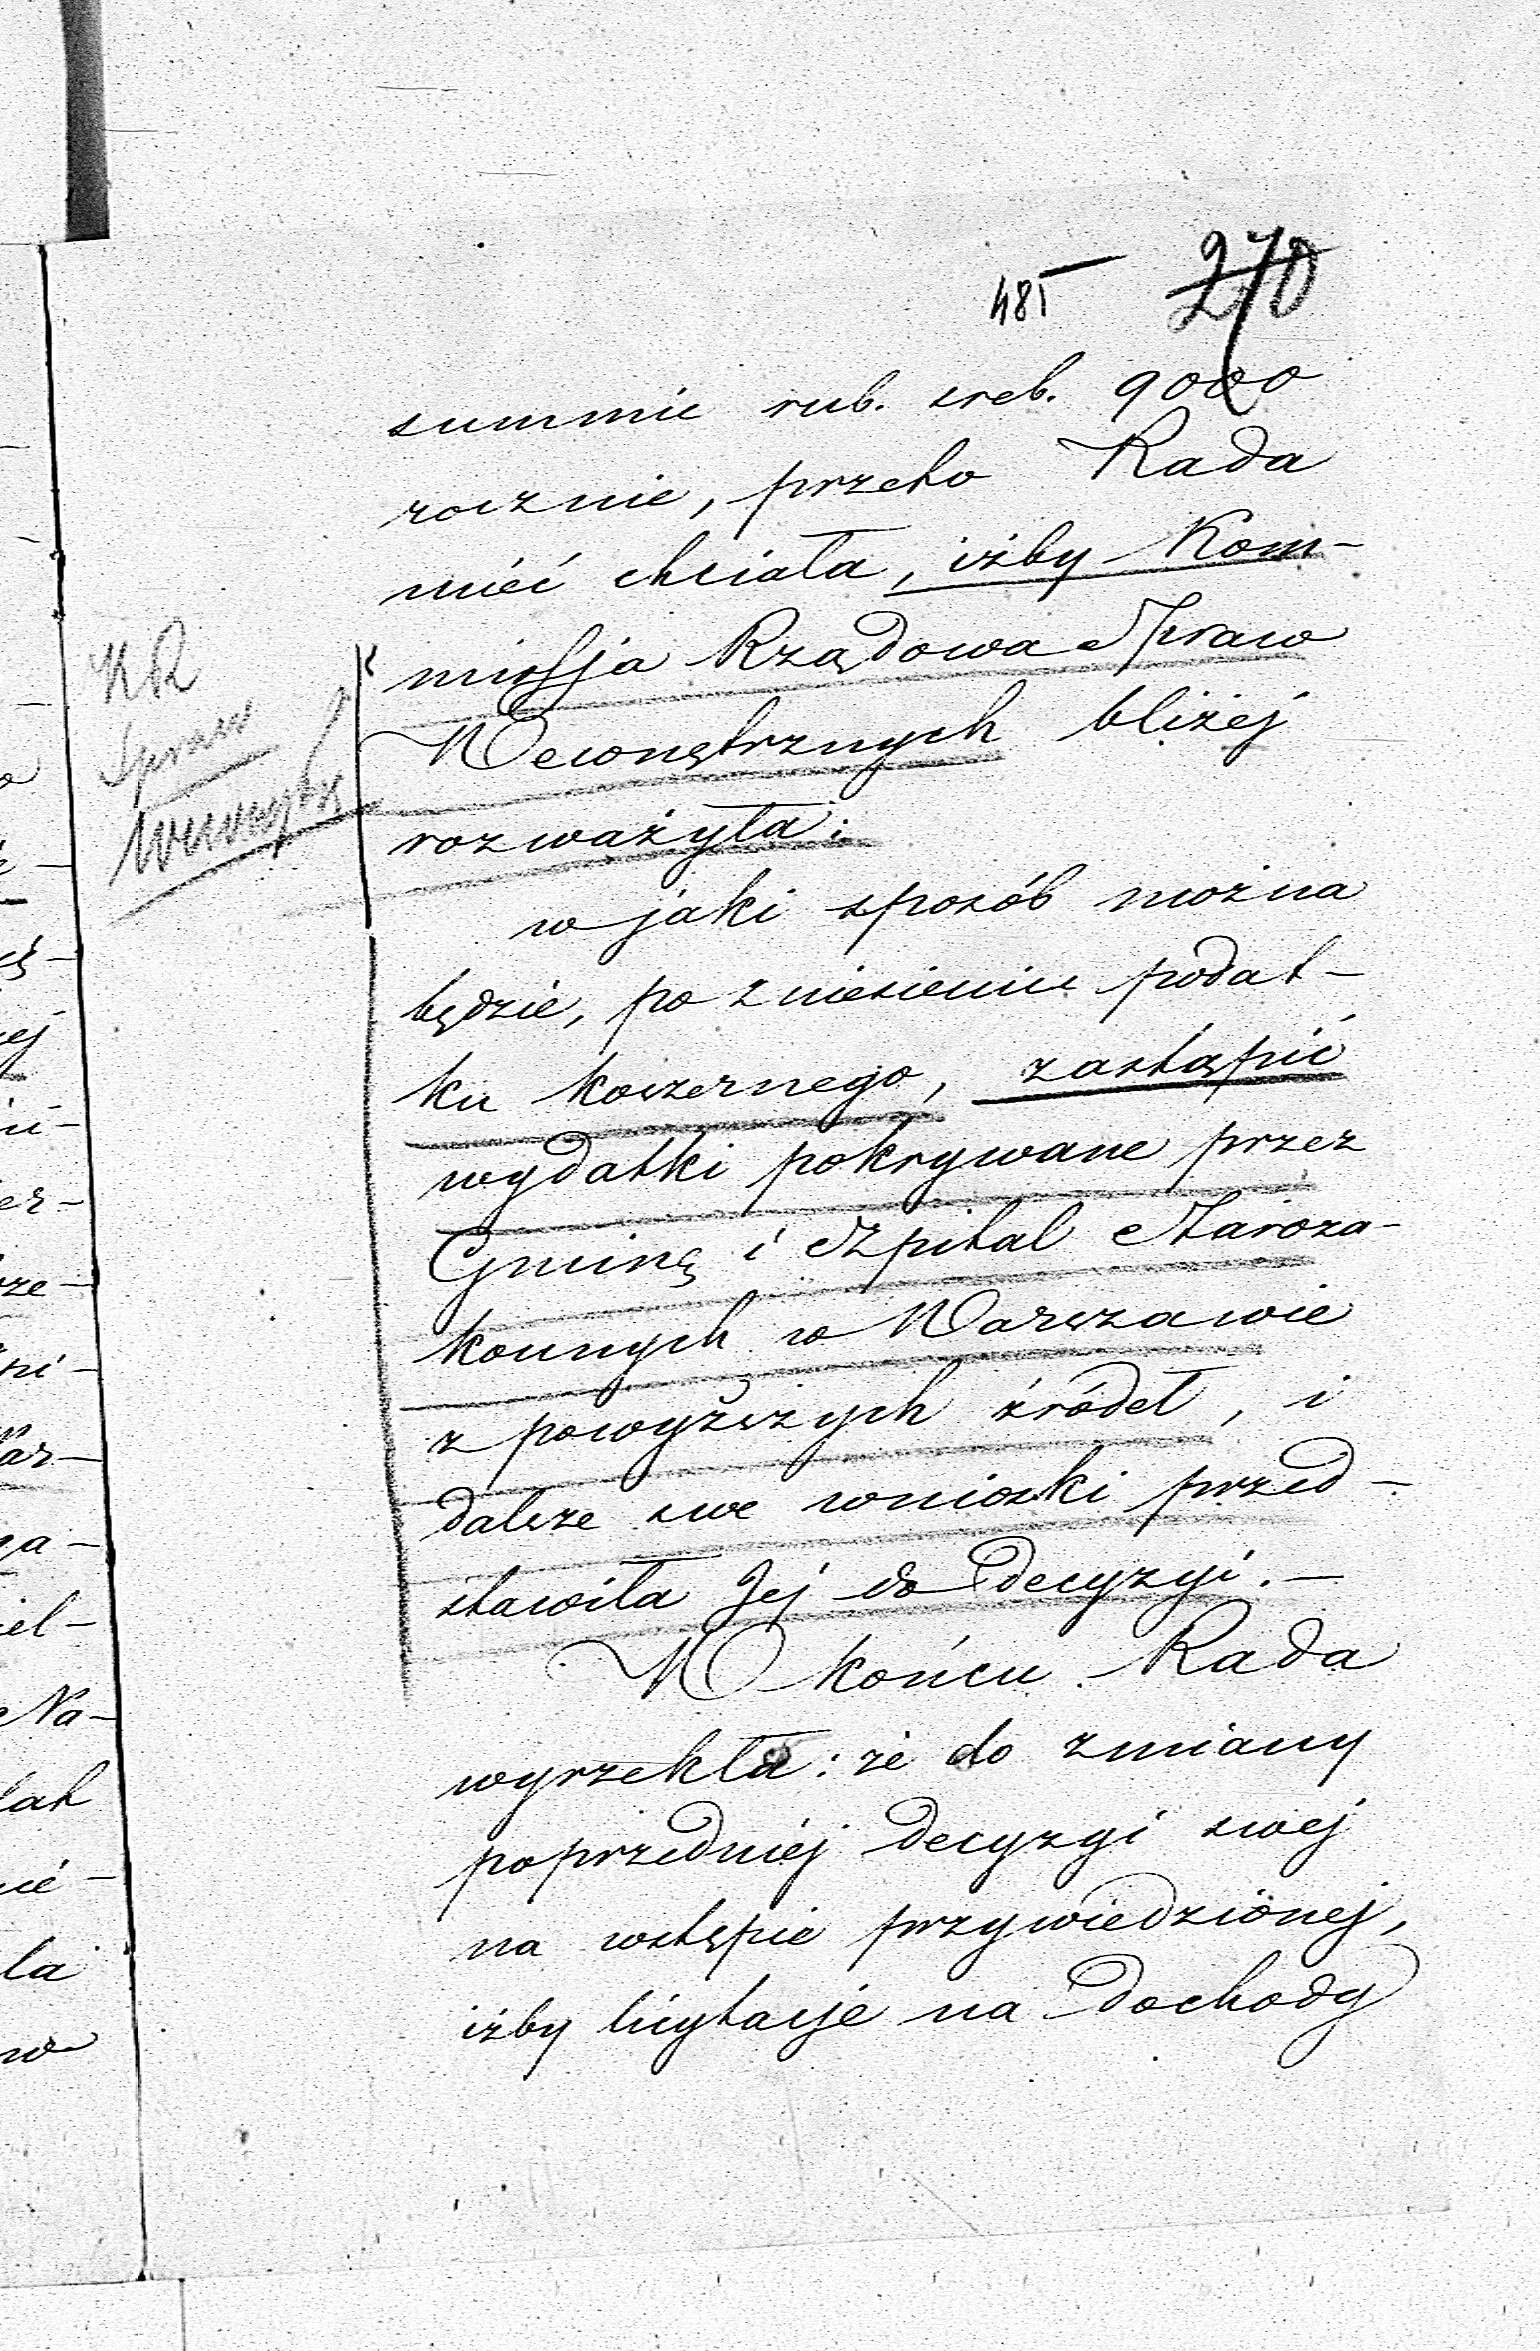 481 270
summie rub. sreb. 9000
rocznie, przeto Rada
mieć chciała, iżby Kom-
missja Rządowa Spraw
Wewnętrznych bliżej
rozważyła:
w jaki sposób można
będzie, po zniesieniu podat-
ku koszernego, zastąpić
wydatki pokrywane przez
Gminę i Szpital Staroza-
konnych w Warszawie
z powyższych źródeł, i
dalsze swe wnioski przed-
stawiła Jej do decyzyi.—
W końcu Rada
wyrzekła: że do zmiany
poprzedniéj decyzyi swej
na wstępie przywiedzionej,
iżby licytacje na dochody
KR
Spraw
Wewnętrz